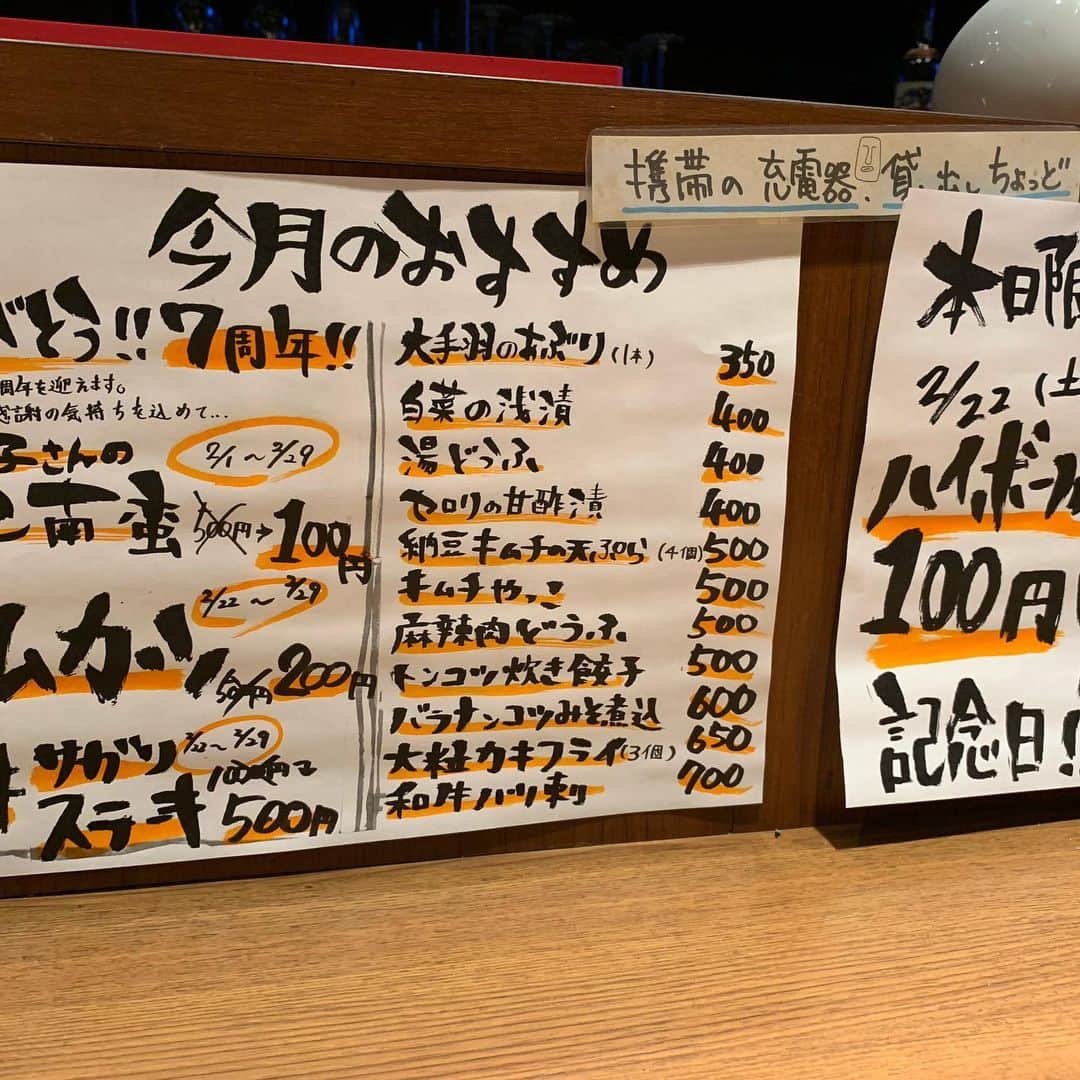 携帯の充電器、貸し出しちょっど
今月のおすすめ
がとう!!7周年!!
周年を迎えます。
感謝の気持ちを込めて...
子さんの
2/1〜2/29
南蛮 500円→100円
2/22〜2/29
ムカツ 200円
サガリ
2/22〜2/29
1000円で
ステーキ 500円
大手羽のあぶり(1本) 350
白菜の浅漬 400
湯どうふ 400
セロリの甘酢漬 400
納豆キムチの天ぷら(4個) 500
キムチやっこ 500
麻辣肉どうふ 500
トンコツ炊き餃子 500
バラナンコツみそ煮込 600
大粒カキフライ(3個) 650
和牛ハツ刺 700
本日限
2/22(土
ハイボール
100円
記念日!!